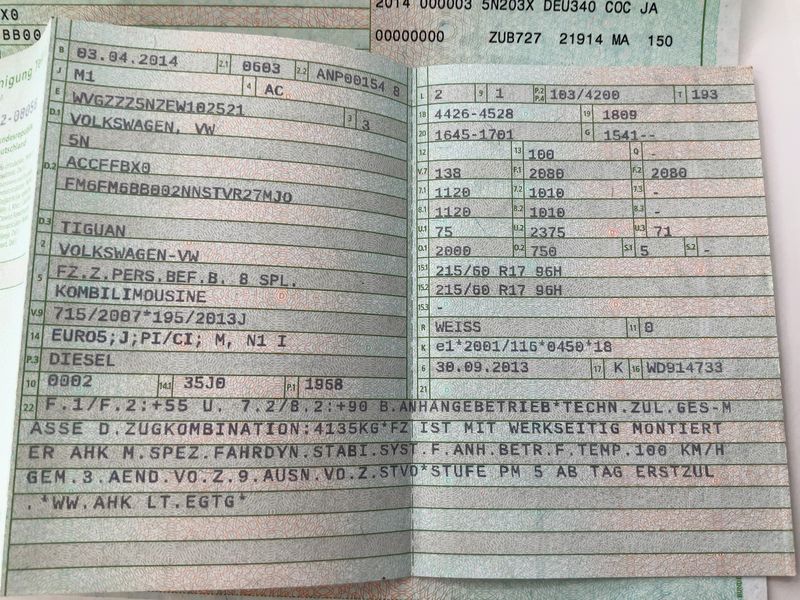 2014 000003 5N203X DEU340 COC JA
00000000 ZUB727 21914 MA 150
X0
BB00
B 03.04.2014 2.1 0603 2.2 ANP00154 8
J M1 4 AC
E WVGZZZ5NZEW102521 3 3
D.1 VOLKSWAGEN, VW
5N
D.2 ACCFFBX0
FM6FM6BB002NNSTVR27MJO
D.3 TIGUAN
2 VOLKSWAGEN-VW
5 FZ.Z.PERS.BEF.B. 8 SPL.
KOMBILIMOUSINE
V.9 715/2007*195/2013J
14 EURO5;J;PI/CI; M, N1 I
P.3 DIESEL
10 0002 14.1 35J0 P.1 1968
L 2 9 1 P.2 P.4 103/4200 T 193
18 4426-4528 19 1809
20 1645-1701 G 1541--
12 13 100 Q -
V.7 138 F.1 2080 F.2 2080
7.1 1120 7.2 1010 7.3 -
8.1 1120 8.2 1010 8.3 -
U.1 75 U.2 2375 U.3 71
O.1 2000 O.2 750 S.1 5 S.2 -
15.1 215/60 R17 96H
15.2 215/60 R17 96H
15.3 -
R WEISS 11 0
K e1*2001/116*0450*18
6 30.09.2013 17 K 16 WD914733
21
22 F.1/F.2:+55 U. 7.2/8.2:+90 B.ANHÄNGEBETRIEB*TECHN.ZUL.GES-M
ASSE D.ZUGKOMBINATION:4135KG*FZ IST MIT WERKSEITIG MONTIERT
ER AHK M.SPEZ.FAHRDYN.STABI.SYST.F.ANH.BETR.F.TEMP.100 KM/H
GEM.3.AEND.VO.Z.9.AUSN.VO.Z.STVO*STUFE PM 5 AB TAG ERSTZUL
.*WW.AHK LT.EGTG*